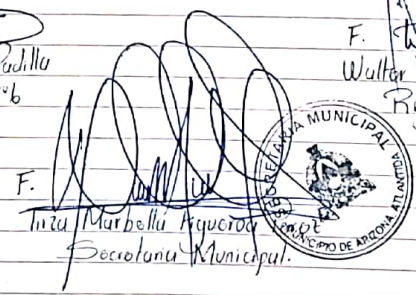 Padilla
F.
Walter
F.
Tirza Marbellá Figueroa
Secretaria Municipal.
SECRETARIA MUNICIPAL
MUNICIPIO DE ARIZONA ATLANTIDA